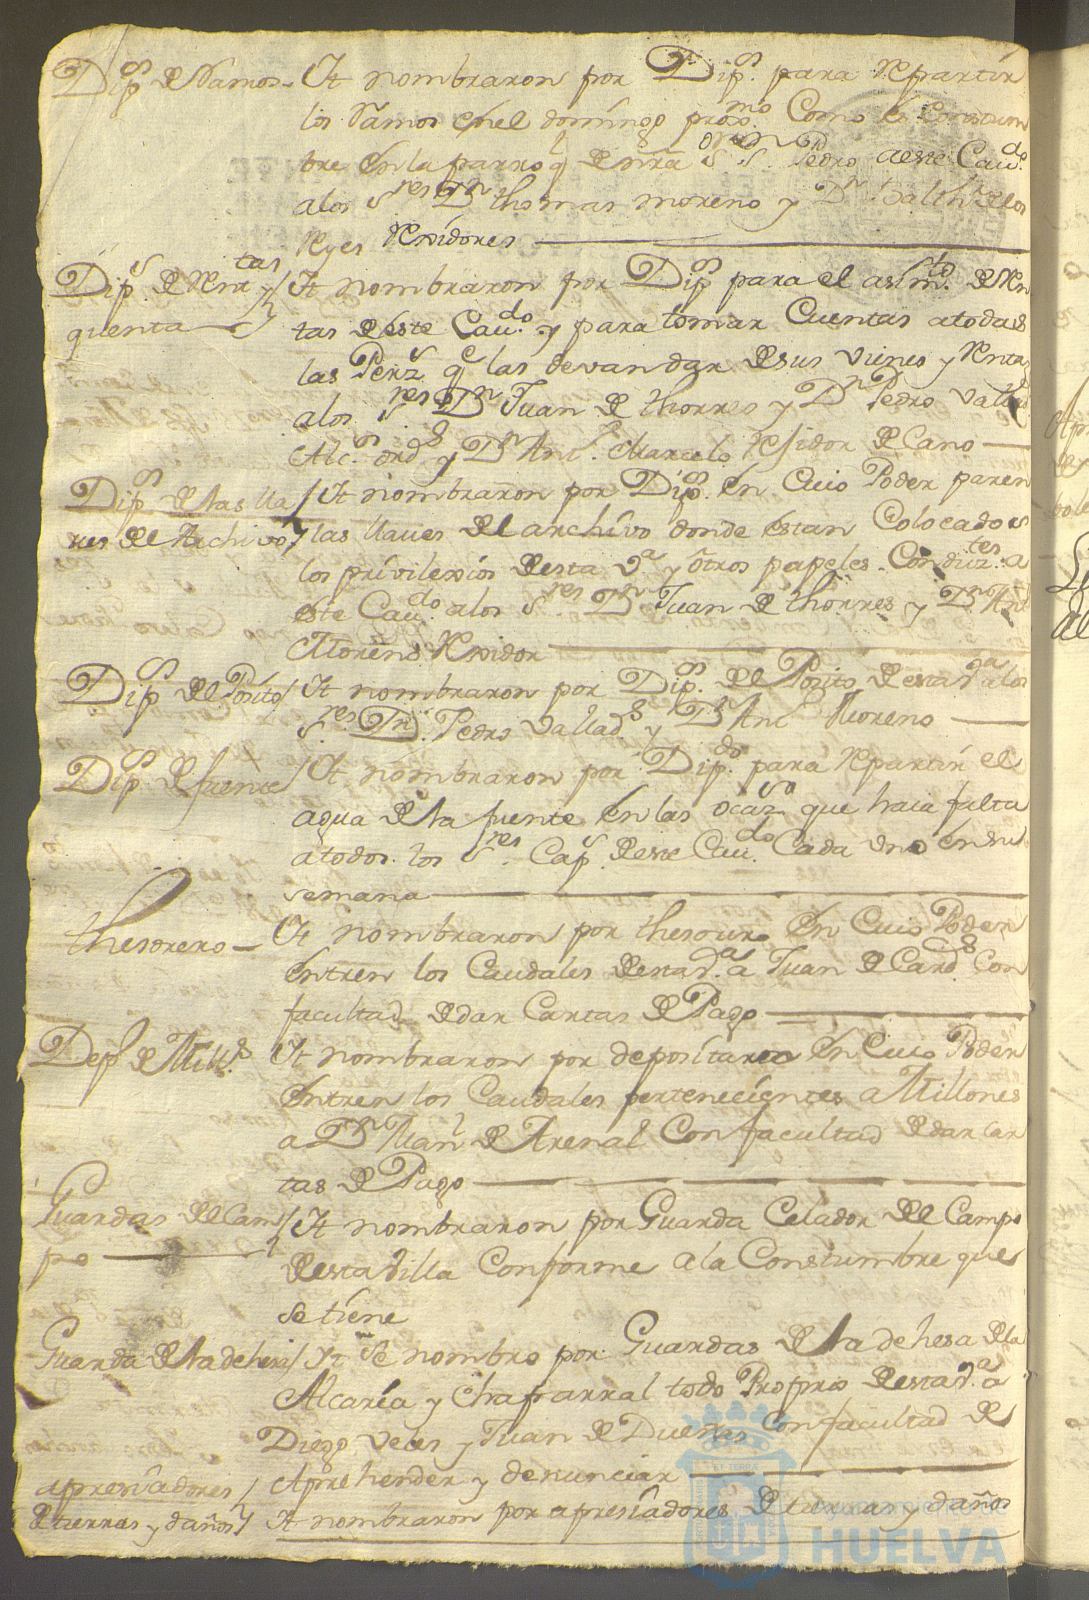 Dip.s de Ramos - It nombraron por Dip.s para Repartir
los Ramos en el domingo prox.mo Como es Constum
bre en la parroq.l de nra S.ra S.r S.n Pedro a este Cau.do
a los S.res D.n thomas moreno y D.n de los
Reyes Rexidores
Dip.s de Rentas y / It nombraron por Dip.s para el asim.to de Ren
quenta
tas de este Cau.do y para tomar Cuentas a todas
las Pers.s q.e las devan dar de sus vienes y Rentas
a los S.res D.n Juan de thorres y D.n Pedro Vallad.s
Alc.s ord.s y D.n Ant.o Marcelo Rexidor decano
Dip.s de las lla / It nombraron por Dip.s en Cuio Poder paren
ves del Archivo y las llaves del archivo donde estan Colocados
los privilexios de esta V.a y otros papeles Conduz.tes a
este Cau.do a los S.res D.n Juan de thorres y D.n Ant.o
Moreno Rexidor
Dip.s del Posito / It nombraron por Dip.s del Posito de esta V.a a los
S.res D.n Pedro Vallad.s y D.n Ant.o Moreno
Dip.s de fuente / It nombraron por Dip.do para Repartir el
agua de la fuente en las ocaz.s que haia falta
a todos los S.res Cap.s de este Cau.do Cada uno en su
semana
thesorero - It nombraron por thesorero en Cuio Poder
entren los Caudales de esta V.a a Juan de Card.s Con
facultad de dar Cartas de Pago
Dep.o de Mill.s It nombraron por depositario en Cuio Poder
entren los Caudales pertenecientes a Millones
a D.n Man.l de Arenal Con facultad de dar Car
tas de Pago
Guardas del Cam / It nombraron por Guarda Celador del Campo
po
de esta Villa Conforme a la Constumbre que
se tiene
Guarda de la dehesa / It se nombro por Guardas de la dehesa de la
Alcaria y Chaparral todo Proprio de esta V.a a
Diego Veles y Juan de Dueñes Con facultad de
Aprehender y denunciar
apresiadores /
de tierras y daños / It nombraron por apresiadores de tierras y daños
Ayuntamiento de
HUELVA